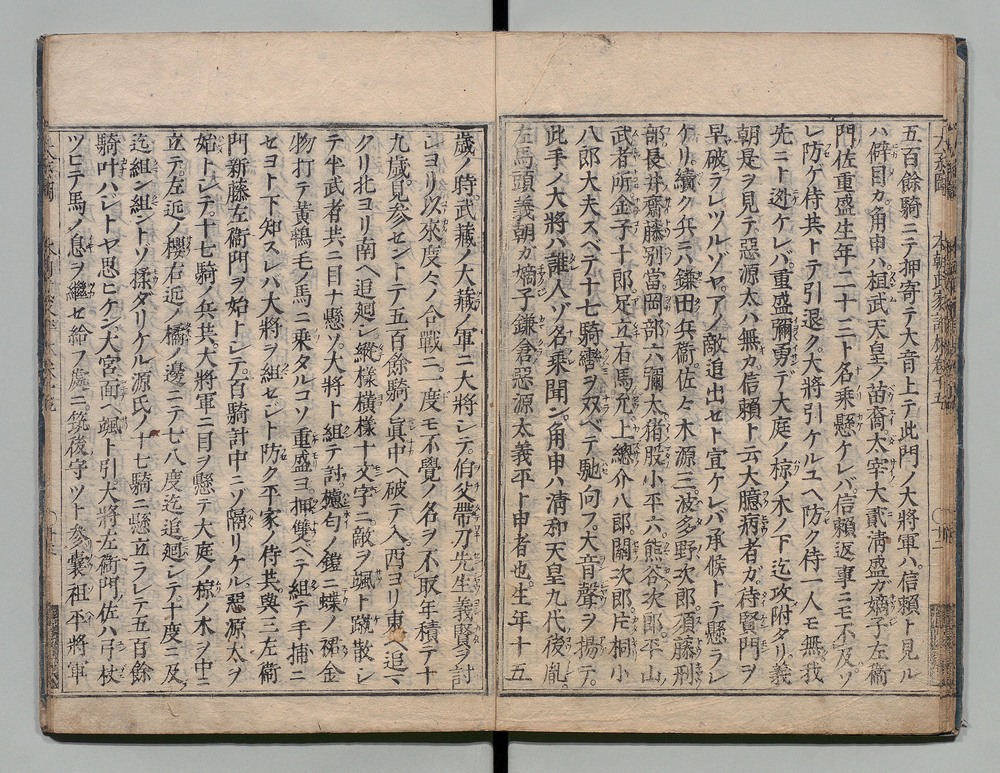 五百餘騎ニテ押寄テ大音上テ此門ノ大將軍ハ信賴ト見ル
ハ僻目カ角申ハ祖武天皇ノ苗裔太宰大貳淸盛ガ嫡子左衞
門佐重盛生年二十三ト名乘懸ケレバ信賴返事ニモ不及ソ
レ防ゲ侍共トテ引退ク大將引ケルユヘ防ク侍一人モ無我
先ニト迯ケレバ重盛彌勇デ大庭ノ椋ノ木ノ下迄攻附タリ義
朝是ヲ見テ惡源太ハ無カ信賴ト云大臆病者ガ待賢門ヲ
早破ラレツルゾヤアノ敵追出セト宣ケレバ承候トテ懸ラレ
ケリ續ク兵ニハ鎌田兵衞佐々木源三波多野次郎須藤刑
部長井齋藤別當岡部六彌太猪股小平六熊谷次郎平山
武者所金子十郎足立右馬允上總介八郎關次郎片桐小
八郎大夫スベテ十七騎轡ヲ双ベテ馳向フ大音聲ヲ揚テ
此手ノ大將ハ誰人ゾ名乘聞ン角申ハ淸和天皇九代後胤
左馬頭義朝ガ嫡子鎌倉惡源太義平ト申者也生年十五
歲ノ時武藏ノ大藏ノ軍ニ大將シテ伯父帶刀先生義賢ヲ討
シヨリ以來度々ノ合戰ニ一度モ不覺ノ名ヲ不取年積テ十
九歲見參セントテ五百餘騎ノ眞中ヘ破テ入西ヨリ東ヘ追マ
クリ北ヨリ南ヘ追廻シ縱樣橫樣十文字ニ敵ヲ颯ト蹴散シ
テ半武者共ニ目ナ懸ソ大將ト組テ討櫨匂ノ鎧ニ蝶ノ裾金
物打テ黃鵇毛ノ馬ニ乘タルコソ重盛ヨ押雙ヘテ組テ手捕ニ
セヨト下知スレハ大將ヲ組セジト防ク平家ノ侍共與三左衞
門新藤左衞門ヲ始トシテ百騎計中ニソ隔リケル惡源太ヲ
始トシテ十七騎ノ兵共大將軍ニ目ヲ懸テ大庭ノ椋ノ木ヲ中ニ
立テ左近ノ櫻右近ノ橘ノ邊ニテ七八度迄追廻シテ十度ニ及
迄組ン組ントソ揉ダリケル源氏ノ十七騎ニ懸立ラレテ五百餘
騎叶ハジトヤ思ヒケン大宮面ヘ颯ト引大將左衞門佐ハ弓杖
ツヒテ馬ノ息ヲ繼セ給フ處ニ筑後守ツト參曩祖平將軍